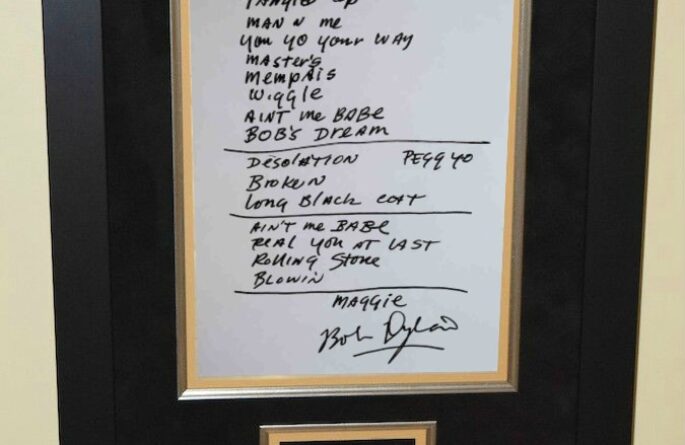 TANGLED UP
MAN N me
You GO YOUR WAY
MASTER'S
Memphis
Wiggle
AINT me BABE
BOB'S DREAM
DESOLATION PEGGY O
BROKEN
LONG BLACK COAT
AIN'T me BABE
REAL YOU AT LAST
Rolling Stone
BLOWIN
MAGGIE
Bob Dylan